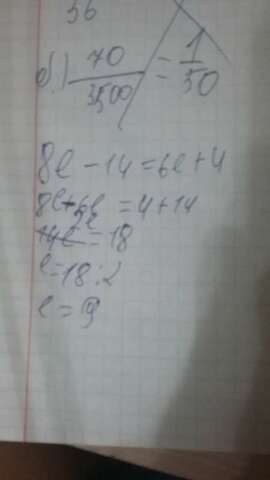 56
б) 70/3500 = 1/50
8l - 14 = 6l + 4
8l - 6l = 4 + 14
2l = 18
l = 18 : 2
l = 9